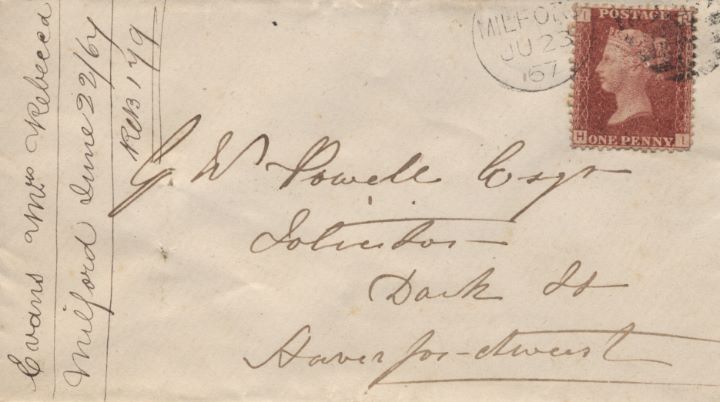 Evans Mrs Rebecca
Milford June 22/67
MILFOR
JU 23
67
POSTAGE
ONE PENNY
H I
G W Powell Esqr
Solicitor
Dark St
Haverfordwest